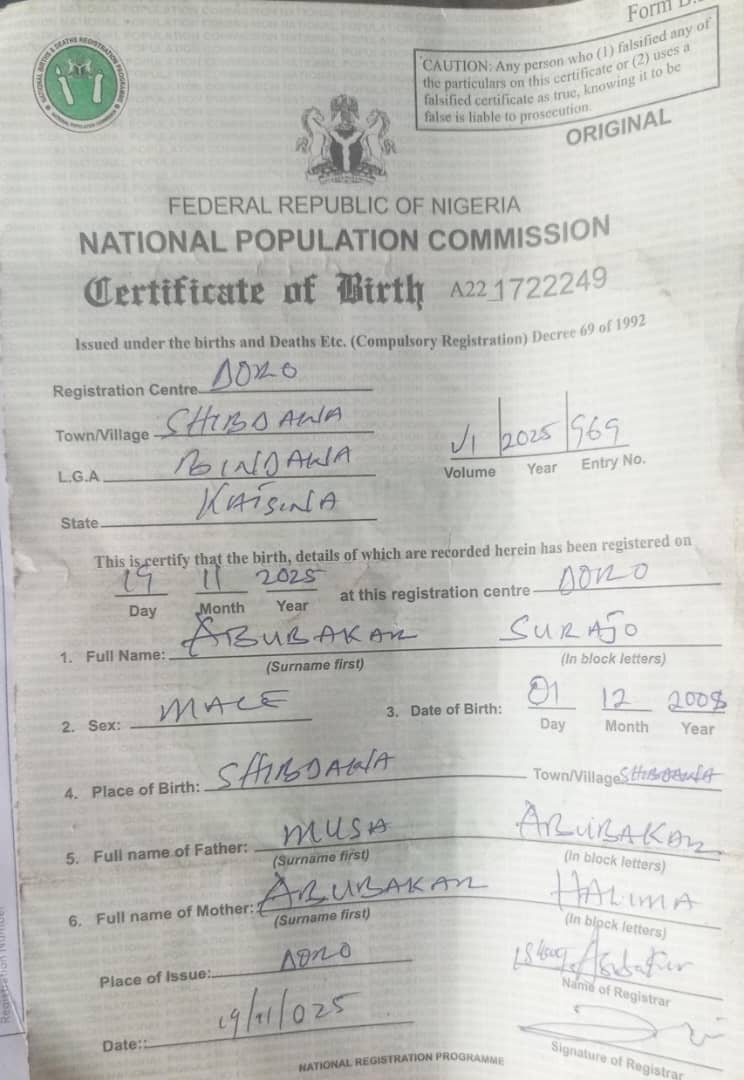 Form
CAUTION: Any person who (1) falsified any of
the particulars on this certificate or (2) uses a
falsified certificate as true, knowing it to be
false is liable to prosecution.
ORIGINAL
FEDERAL REPUBLIC OF NIGERIA
NATIONAL POPULATION COMMISSION
Certificate of Birth A22 1722249
Issued under the births and Deaths Etc. (Compulsory Registration) Decree 69 of 1992
Registration Centre DORO
Town/Village SHIBDAWA
L.G.A BINDAWA
State KATSINA
V1 2025 969
Volume Year Entry No.
This is certify that the birth, details of which are recorded herein has been registered on
19 11 2025 at this registration centre DORO
Day Month Year
1. Full Name: ABUBAKAR SURAJO
(Surname first) (In block letters)
2. Sex: MALE 3. Date of Birth: 01 12 2008
Day Month Year
4. Place of Birth: SHIBDAWA Town/Village SHIBDAWA
5. Full name of Father: MUSA ABUBAKAR
(Surname first) (In block letters)
6. Full name of Mother: ABUBAKAR HALIMA
(Surname first) (In block letters)
Place of Issue: DORO
Name of Registrar
Date:: 19/11/025
Signature of Registrar
NATIONAL REGISTRATION PROGRAMME